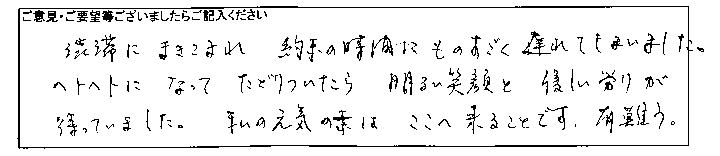 ご意見・ご要望等ございましたらご記入ください
渋滞にまきこまれ 約束の時間にものすごく遅れてしまいました。
ヘトヘトになって たどりついたら 明るい笑顔と優しい労りが
待っていました。 私の元気の素は ここへ来ることです。有難う。